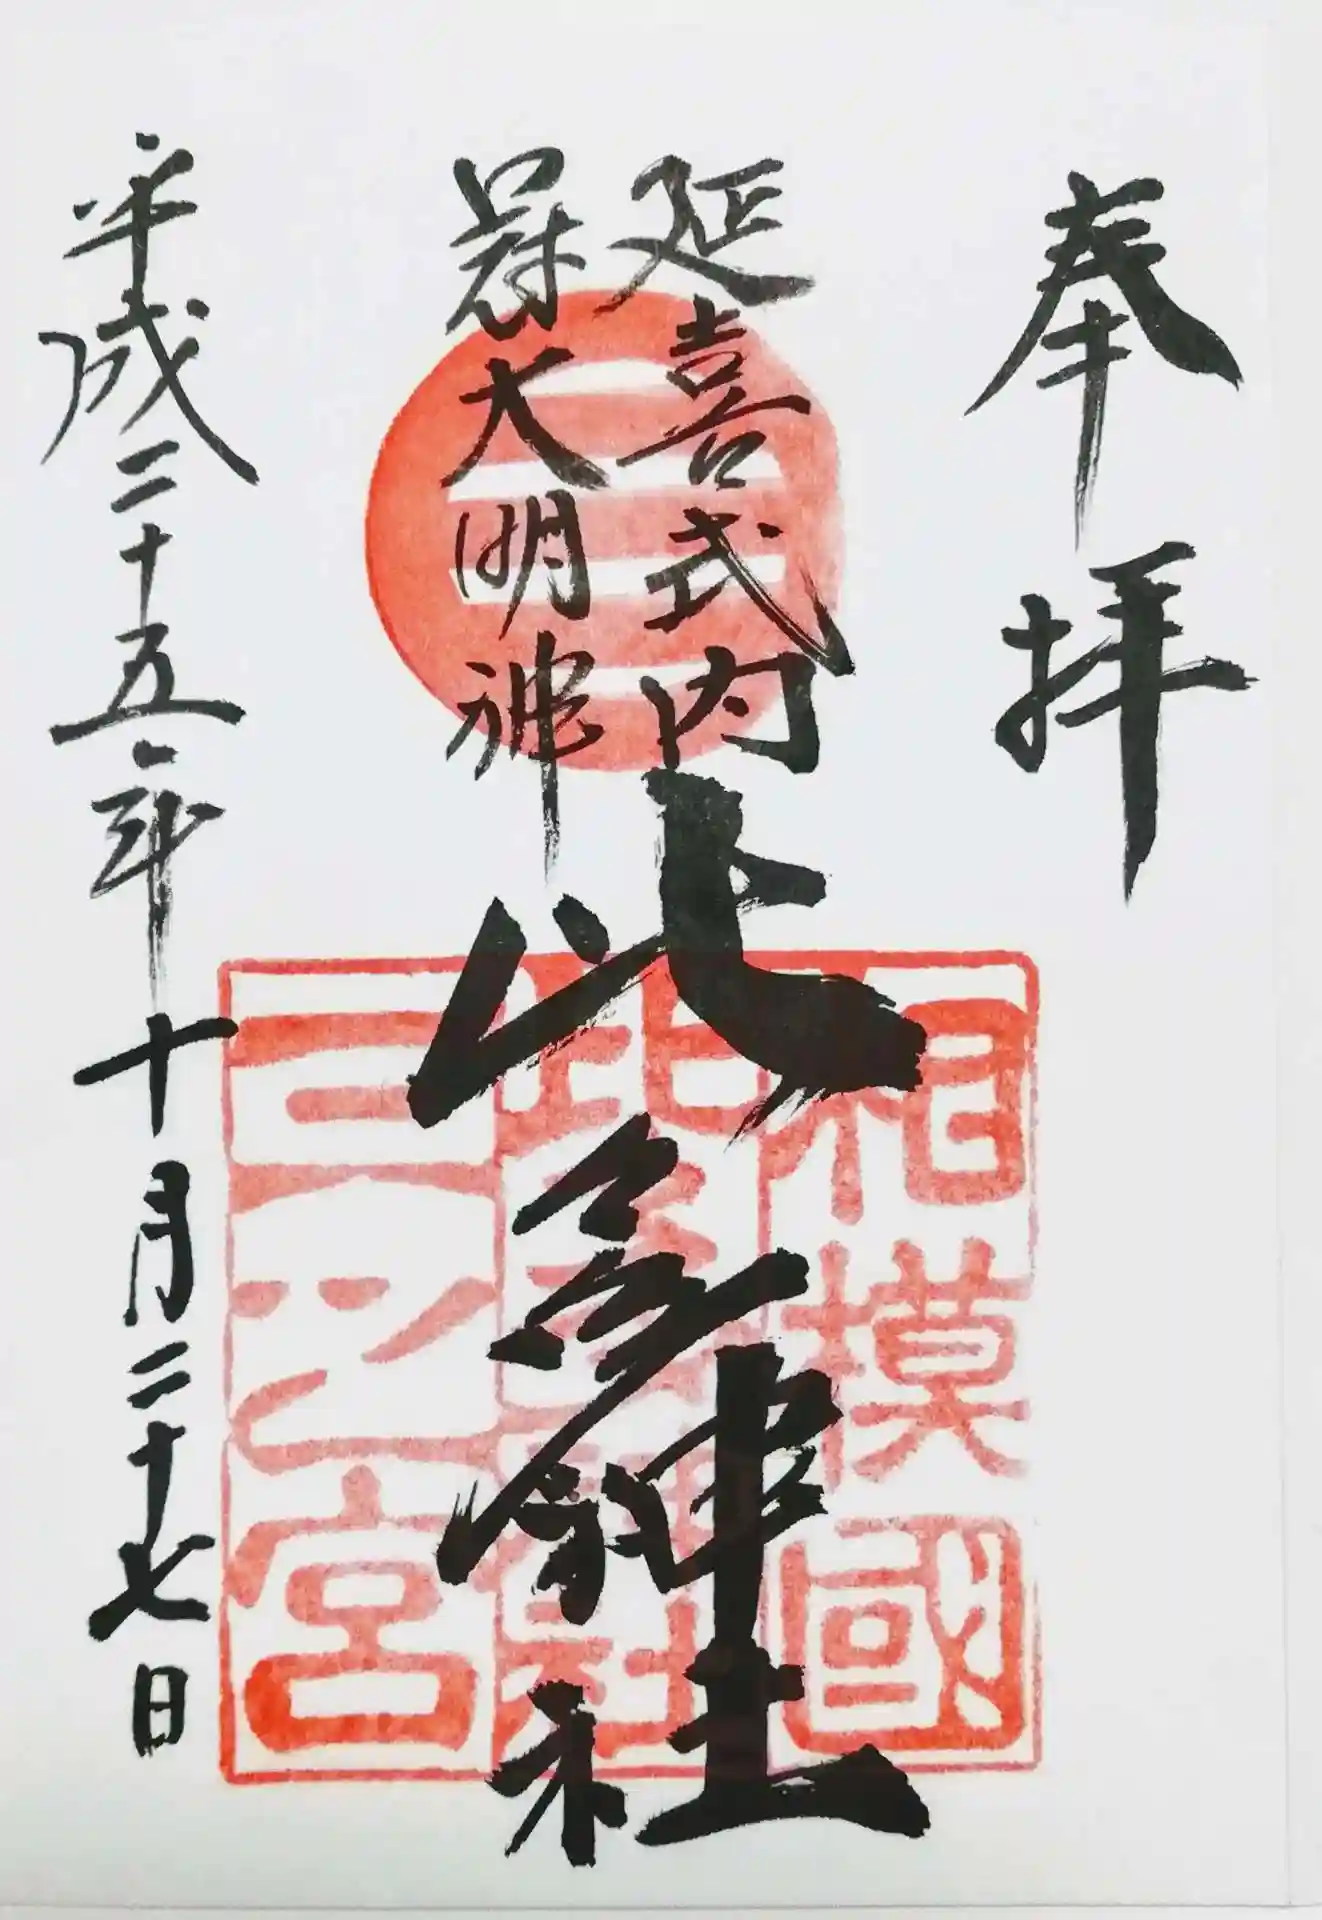 奉拝
延喜式内
冠大明神
比々多神社
相模國
比比多神社
三之宮
平成二十五年十月二十七日